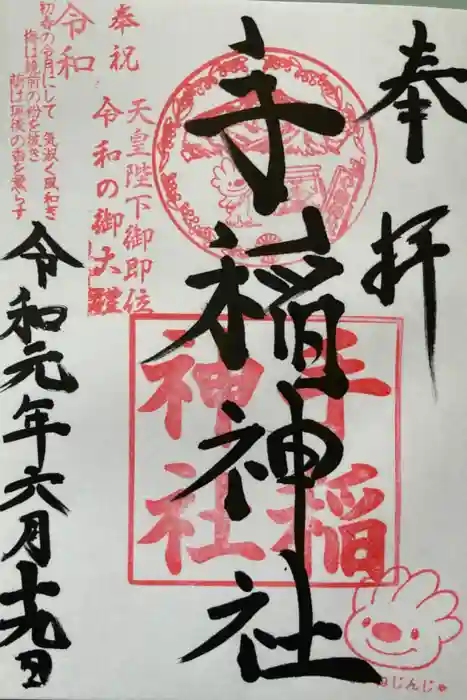 奉拝
手稲神社
手稲
神社
奉祝
天皇陛下御即位
令和の御大礼
令和
初春の令月にして 気淑く風和ぎ
梅は鏡前の粉を披き
蘭は珮後の香を薫らす
令和元年六月十九日
じんじゃ